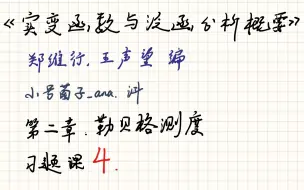 《实变函数与泛函分析概要》
郑维行，王声望 编
小号菊子_ana. 讲
第二章. 勒贝格测度
习题课 4.